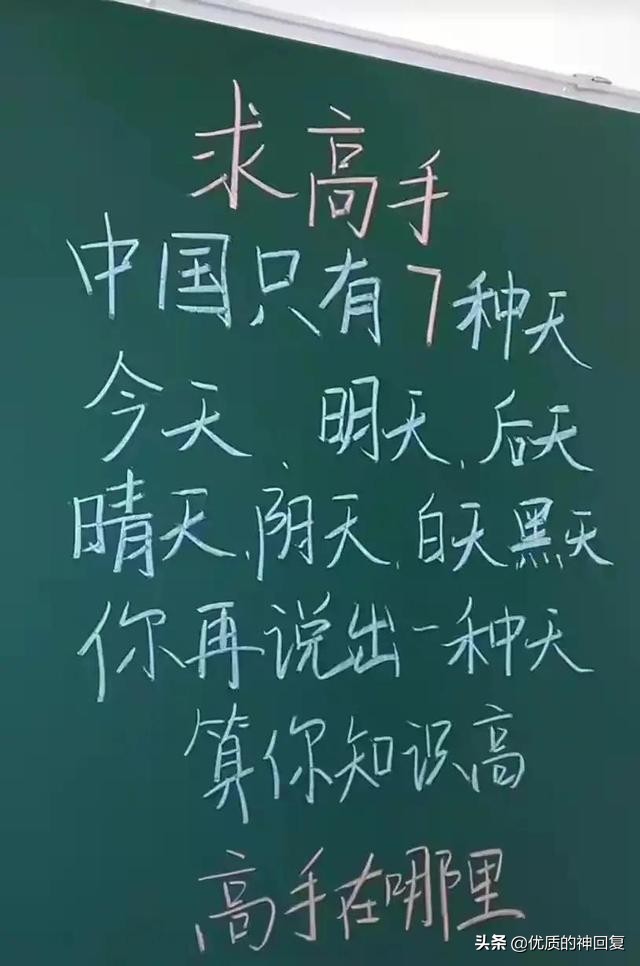 求高手
中国只有7种天
今天、明天、后天
晴天、阴天、白天黑天
你再说出一种天
算你知识高
高手在哪里
头条 @优质的神回复